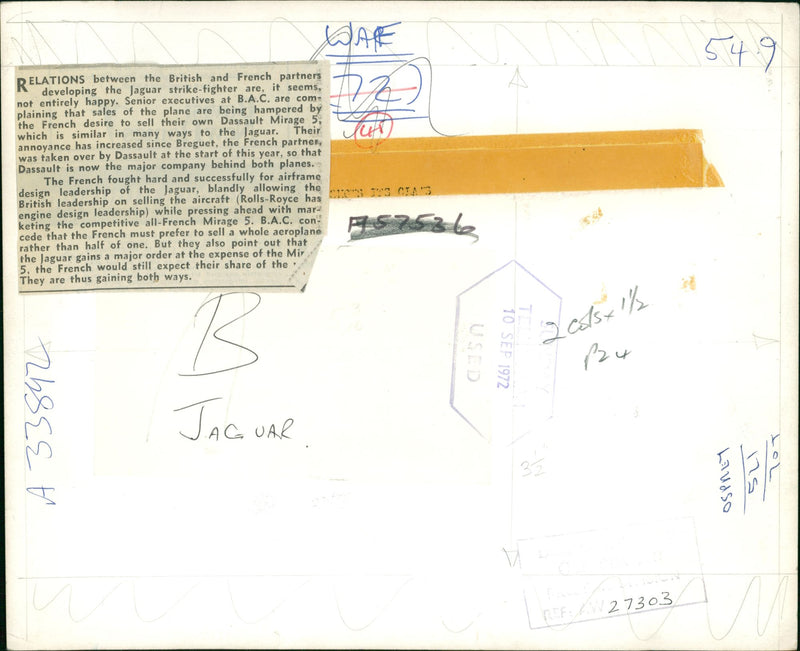 WAR
549
RELATIONS between the British and French partners
developing the Jaguar strike-fighter are, it seems,
not entirely happy. Senior executives at B.A.C. are com-
plaining that sales of the plane are being hampered by
the French desire to sell their own Dassault Mirage 5,
which is similar in many ways to the Jaguar. Their
annoyance has increased since Breguet, the French partner,
was taken over by Dassault at the start of this year, so that
Dassault is now the major company behind both planes.
The French fought hard and successfully for airframe
design leadership of the Jaguar, blandly allowing the
British leadership on selling the aircraft (Rolls-Royce has
engine design leadership) while pressing ahead with mar-
keting the competitive all-French Mirage 5. B.A.C. con-
cede that the French must prefer to sell a whole aeroplane
rather than half of one. But they also point out that
the Jaguar gains a major order at the expense of the Mir
5, the French would still expect their share of the
They are thus gaining both ways.
A57536
10 SEP 1972
USED
2 cols x 1½
P24
B
JAGUAR.
A 33842
3½
27303